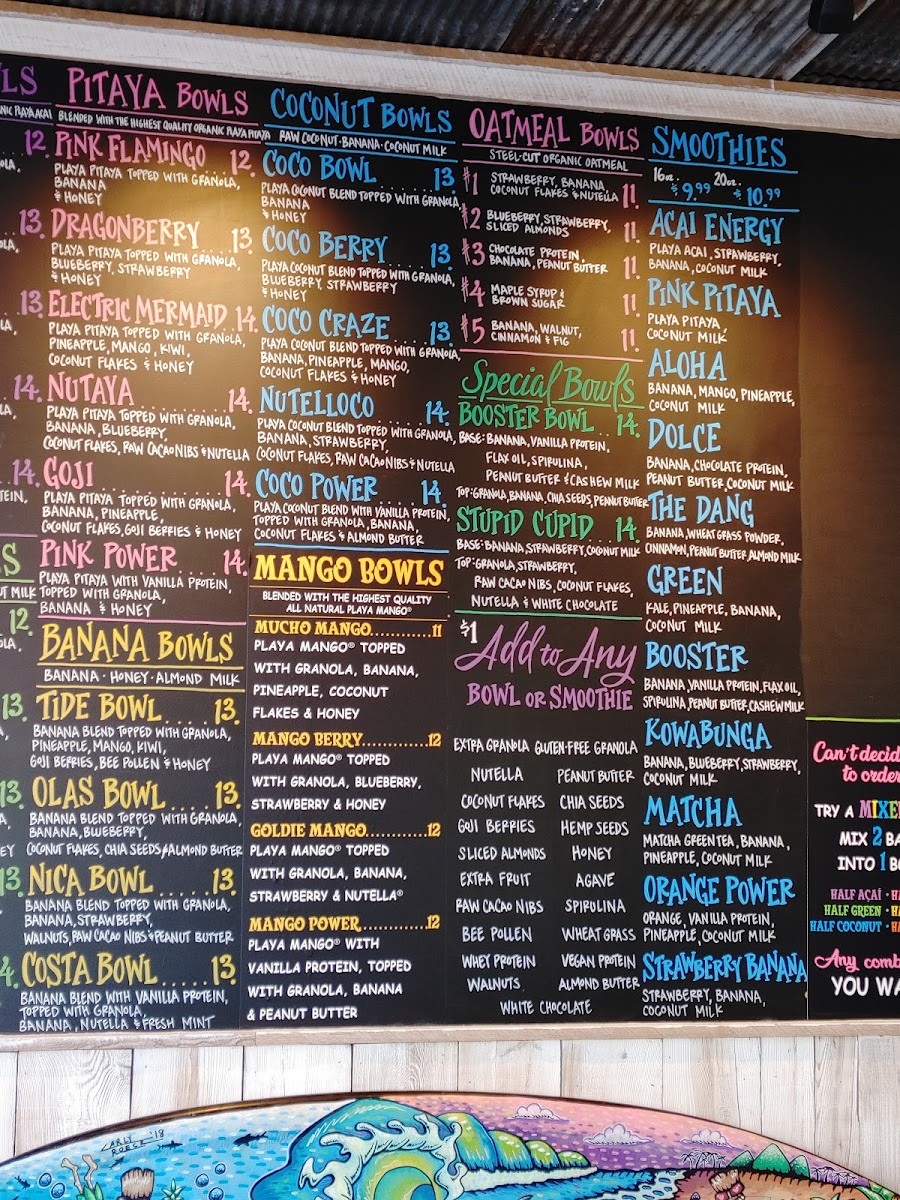 WLS
12.
13.
13.
14.
14.
12.
13.
13.
13.
PITAYA BOWLS
BLENDED WITH THE HIGHEST QUALITY ORGANIC PLAYA PITAYA
PINK FLAMINGO 12.
PLAYA PITAYA TOPPED WITH GRANOLA,
BANANA
& HONEY
DRAGONBERRY 13.
PLAYA PITAYA TOPPED WITH GRANOLA,
BLUEBERRY, STRAWBERRY
& HONEY
ELECTRIC MERMAID 14.
PLAYA PITAYA TOPPED WITH GRANOLA,
PINEAPPLE, MANGO, KIWI,
COCONUT FLAKES & HONEY
NUTAYA 14.
PLAYA PITAYA TOPPED WITH GRANOLA,
BANANA, BLUEBERRY,
COCONUT FLAKES, RAW CACAO NIBS & NUTELLA
GOJI 14.
PLAYA PITAYA TOPPED WITH GRANOLA,
BANANA, PINEAPPLE,
COCONUT FLAKES, GOJI BERRIES & HONEY
PINK POWER 14.
PLAYA PITAYA WITH VANILLA PROTEIN,
TOPPED WITH GRANOLA,
BANANA & HONEY
BANANA BOWLS
BANANA · HONEY · ALMOND MILK
TIDE BOWL .... 13.
BANANA BLEND TOPPED WITH GRANOLA,
PINEAPPLE, MANGO, KIWI,
GOJI BERRIES, BEE POLLEN & HONEY
OLAS BOWL .... 13.
BANANA BLEND TOPPED WITH GRANOLA,
BANANA, BLUEBERRY,
COCONUT FLAKES, CHIA SEEDS & ALMOND BUTTER
NICA BOWL .... 13.
BANANA BLEND TOPPED WITH GRANOLA,
BANANA, STRAWBERRY,
WALNUTS, RAW CACAO NIBS & PEANUT BUTTER
COSTA BOWL .... 13.
BANANA BLEND WITH VANILLA PROTEIN,
TOPPED WITH GRANOLA,
BANANA, NUTELLA & FRESH MINT
COCONUT BOWLS
RAW COCONUT · BANANA · COCONUT MILK
COCO BOWL 13.
PLAYA COCONUT BLEND TOPPED WITH GRANOLA,
BANANA
& HONEY
COCO BERRY 13.
PLAYA COCONUT BLEND TOPPED WITH GRANOLA,
BLUEBERRY, STRAWBERRY
& HONEY
COCO CRAZE 13.
PLAYA COCONUT BLEND TOPPED WITH GRANOLA,
BANANA, PINEAPPLE, MANGO,
COCONUT FLAKES & HONEY
NUTELLOCO 14.
PLAYA COCONUT BLEND TOPPED WITH GRANOLA,
BANANA, STRAWBERRY,
COCONUT FLAKES, RAW CACAO NIBS & NUTELLA
COCO POWER 14.
PLAYA COCONUT BLEND WITH VANILLA PROTEIN,
TOPPED WITH GRANOLA, BANANA,
COCONUT FLAKES & ALMOND BUTTER
MANGO BOWLS
BLENDED WITH THE HIGHEST QUALITY
ALL NATURAL PLAYA MANGO®
MUCHO MANGO...........11
PLAYA MANGO® TOPPED
WITH GRANOLA, BANANA,
PINEAPPLE, COCONUT
FLAKES & HONEY
MANGO BERRY...........12
PLAYA MANGO® TOPPED
WITH GRANOLA, BLUEBERRY,
STRAWBERRY & HONEY
GOLDIE MANGO...........12
PLAYA MANGO® TOPPED
WITH GRANOLA, BANANA,
STRAWBERRY & NUTELLA®
MANGO POWER...........12
PLAYA MANGO® WITH
VANILLA PROTEIN, TOPPED
WITH GRANOLA, BANANA
& PEANUT BUTTER
OATMEAL BOWLS
STEEL-CUT ORGANIC OATMEAL
#1 STRAWBERRY, BANANA,
COCONUT FLAKES & NUTELLA 11.
#2 BLUEBERRY, STRAWBERRY,
SLICED ALMONDS 11.
#3 CHOCOLATE PROTEIN,
BANANA, PEANUT BUTTER 11.
#4 MAPLE SYRUP &
BROWN SUGAR 11.
#5 BANANA, WALNUT,
CINNAMON & FIG 11.
Special Bowls
BOOSTER BOWL ... 14.
BASE: BANANA, VANILLA PROTEIN,
FLAX OIL, SPIRULINA,
PEANUT BUTTER & CASHEW MILK
TOP: GRANOLA, BANANA, CHIA SEEDS, PEANUT BUTTER
STUPID CUPID 14.
BASE: BANANA, STRAWBERRY, COCONUT MILK
TOP: GRANOLA, STRAWBERRY,
RAW CACAO NIBS, COCONUT FLAKES,
NUTELLA & WHITE CHOCOLATE
$1 Add to Any
BOWL OR SMOOTHIE
EXTRA GRANOLA GLUTEN-FREE GRANOLA
NUTELLA PEANUT BUTTER
COCONUT FLAKES CHIA SEEDS
GOJI BERRIES HEMP SEEDS
SLICED ALMONDS HONEY
EXTRA FRUIT AGAVE
RAW CACAO NIBS SPIRULINA
BEE POLLEN WHEAT GRASS
WHEY PROTEIN VEGAN PROTEIN
WALNUTS ALMOND BUTTER
WHITE CHOCOLATE
SMOOTHIES
16oz. 20oz.
$9.99 $10.99
ACAI ENERGY
PLAYA ACAI, STRAWBERRY,
BANANA, COCONUT MILK
PINK PITAYA
PLAYA PITAYA,
COCONUT MILK
ALOHA
BANANA, MANGO, PINEAPPLE,
COCONUT MILK
DOLCE
BANANA, CHOCOLATE PROTEIN,
PEANUT BUTTER, COCONUT MILK
THE DANG
BANANA, WHEAT GRASS POWDER,
CINNAMON, PEANUT BUTTER, ALMOND MILK
GREEN
KALE, PINEAPPLE, BANANA,
COCONUT MILK
BOOSTER
BANANA, VANILLA PROTEIN, FLAX OIL,
SPIRULINA, PEANUT BUTTER, CASHEW MILK
KOWABUNGA
BANANA, BLUEBERRY, STRAWBERRY,
COCONUT MILK
MATCHA
MATCHA GREEN TEA, BANANA,
PINEAPPLE, COCONUT MILK
ORANGE POWER
ORANGE, VANILLA PROTEIN,
PINEAPPLE, COCONUT MILK
STRAWBERRY BANANA
STRAWBERRY, BANANA,
COCONUT MILK
Can't decid
to order
TRY A MIXE
MIX 2 BA
INTO 1 BO
HALF AÇAÍ · H
HALF GREEN · HA
HALF COCONUT · HA
Any comb
YOU WA
CARLY
ROESE '18